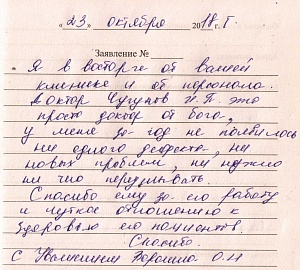 "23" октября 2018 г.
Заявление №
Я в восторге от вашей
клиники и её персонала.
Доктор Чугунов И.П. это
просто доктор от бога,
у меня за год не появилось
ни одного дефекта, ни
новых проблем, ни нужно
ни что переделывать.
Спасибо ему за его работу
и чуткое отношению к
здоровью его пациентов.
Спасибо.
С Уважением О.Н